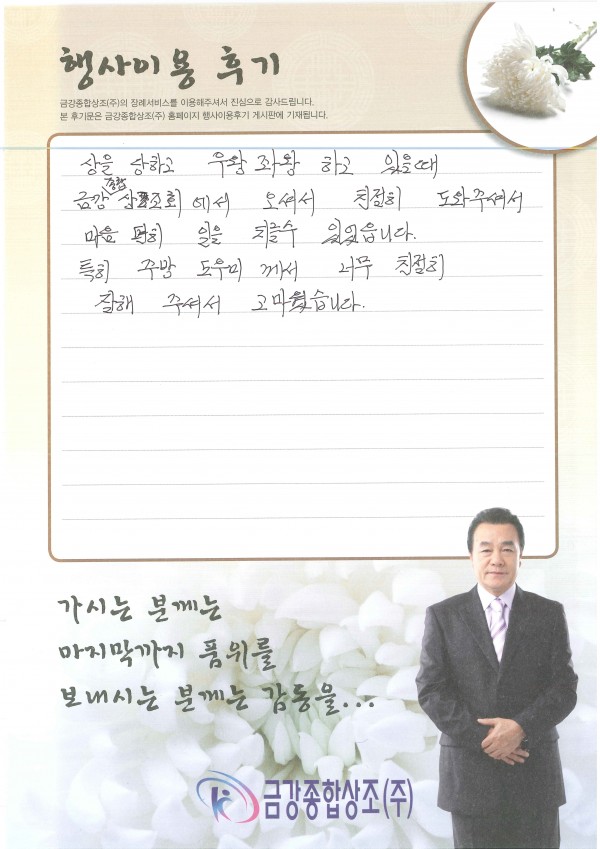 행사이용 후기
금강종합상조(주)의 장례서비스를 이용해주셔서 진심으로 감사드립니다.
본 후기문은 금강종합상조(주) 홈페이지 행사이용후기 게시판에 기재됩니다.
상을 당하고 우왕 좌왕 하고 있을때
종합
금강 상조회에서 오셔서 친절히 도와주셔서
마음 편히 일을 치를수 있었습니다.
특히 주방 도우미 께서 너무 친절히
잘해 주셔서 고마웠습니다.
가시는 분께는
마지막까지 품위를
보내시는 분께는 감동을...
금강종합상조(주)